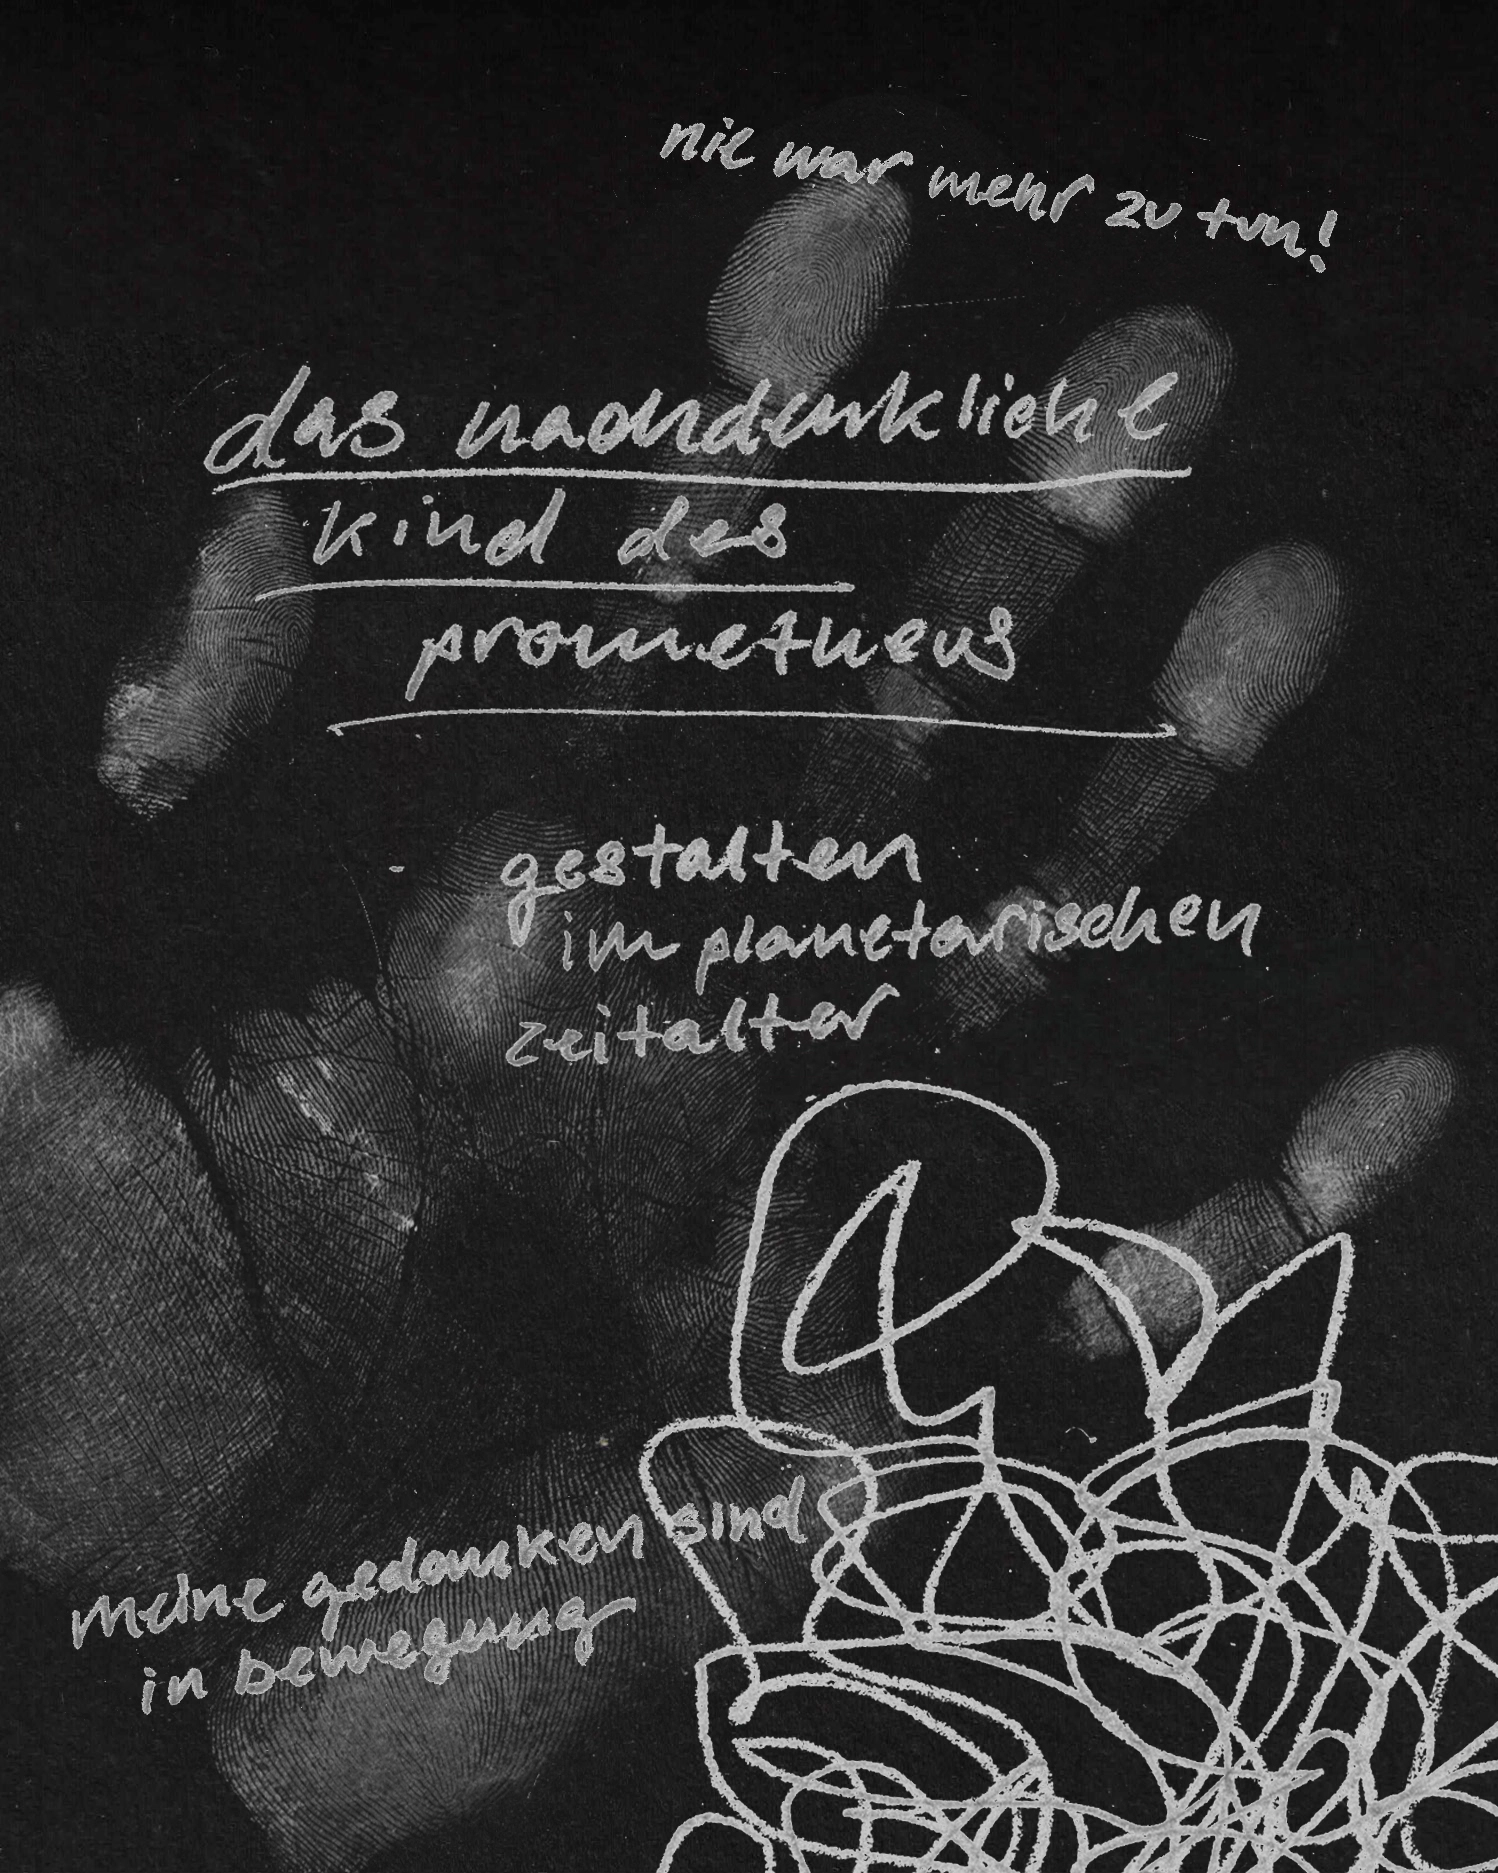 nie war mehr zu tun!
das nachdenkliche
kind des
prometheus
gestalten
im planetarischen
zeitalter
meine gedanken sind
in bewegung